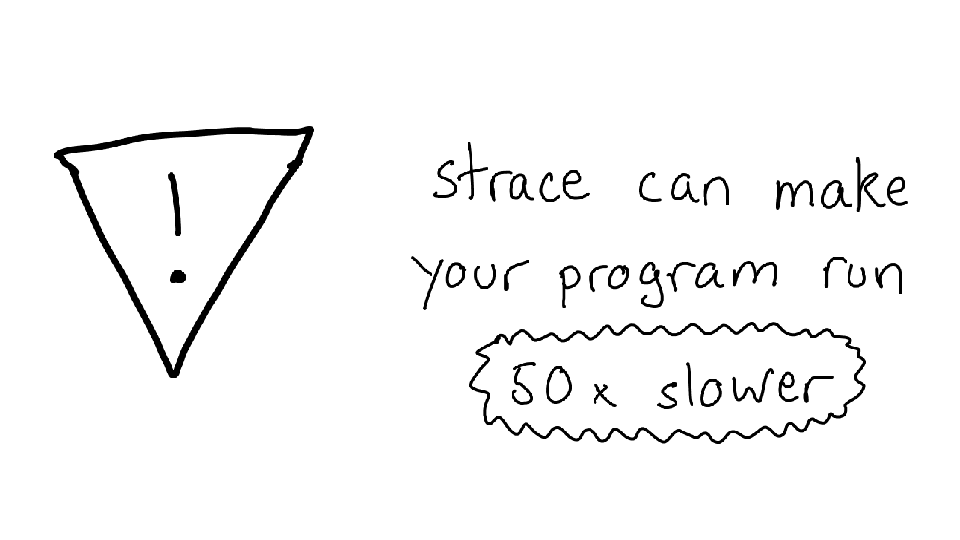 !
strace can make
your program run
50x slower